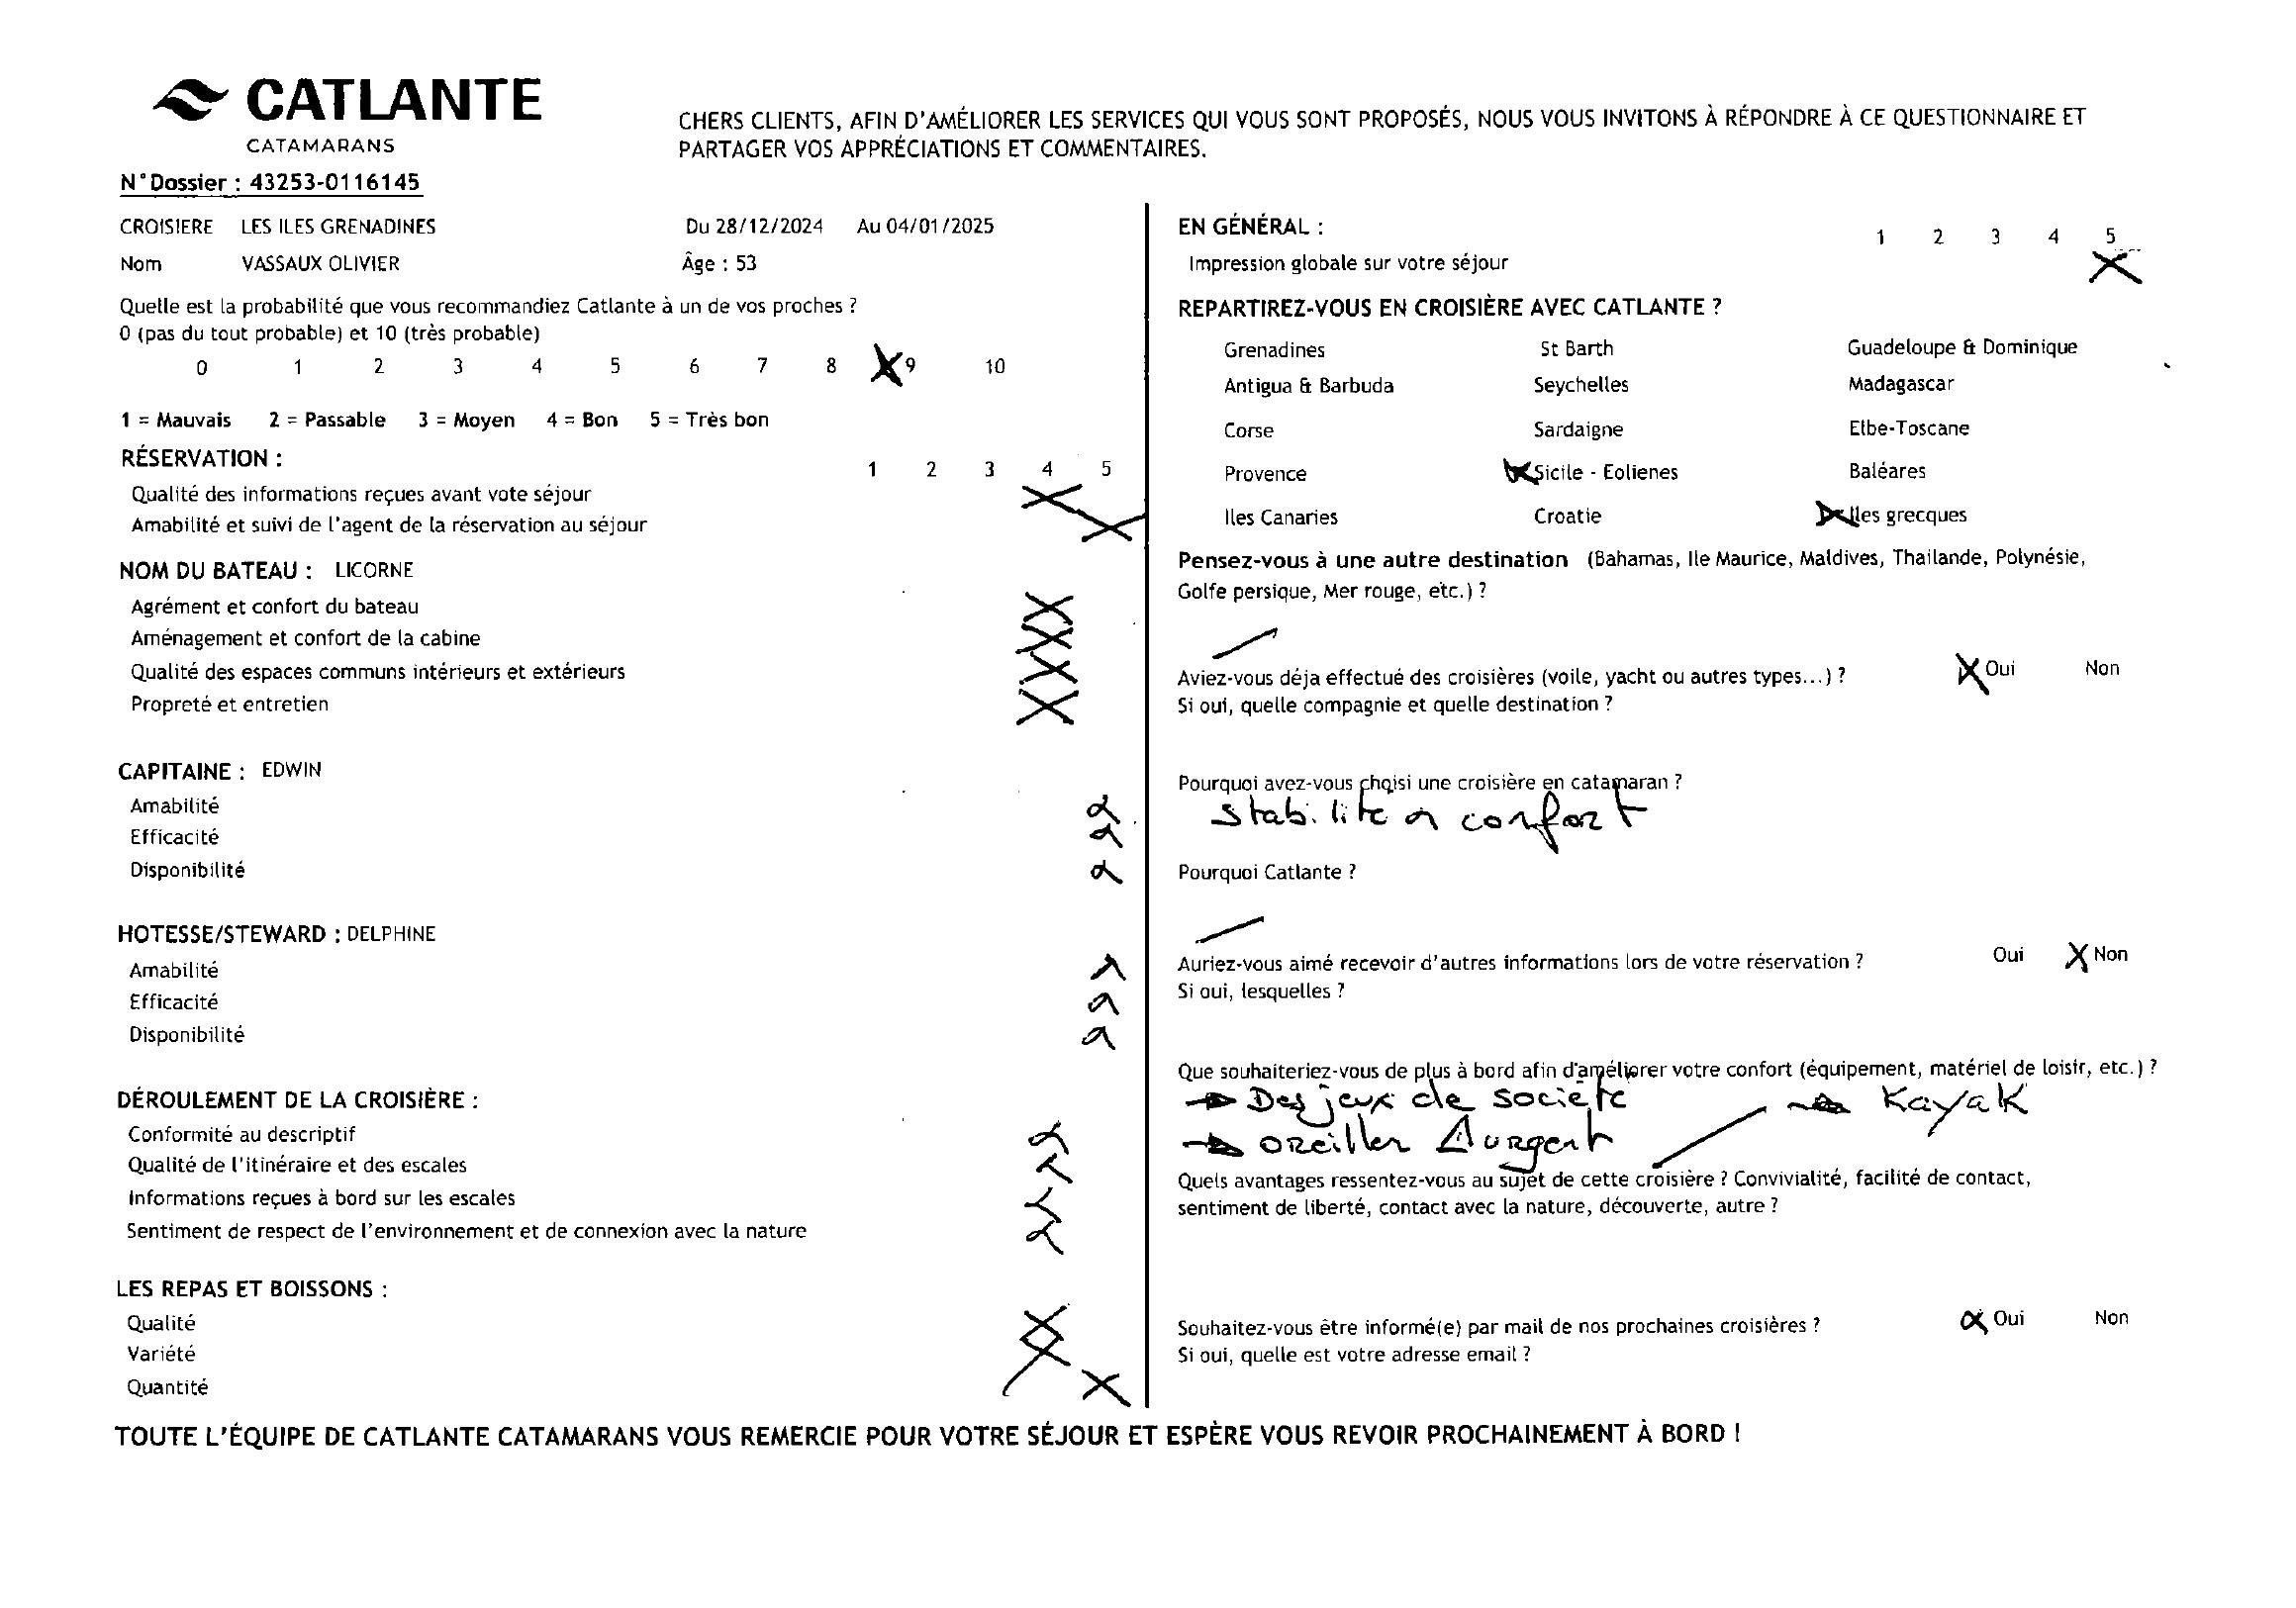 CATLANTE
CATAMARANS
CHERS CLIENTS, AFIN D'AMÉLIORER LES SERVICES QUI VOUS SONT PROPOSÉS, NOUS VOUS INVITONS À RÉPONDRE À CE QUESTIONNAIRE ET
PARTAGER VOS APPRÉCIATIONS ET COMMENTAIRES.
N°Dossier : 43253-0116145
CROISIERE LES ILES GRENADINES Du 28/12/2024 Au 04/01/2025
Nom VASSAUX OLIVIER Âge : 53
Quelle est la probabilité que vous recommandiez Catlante à un de vos proches ?
0 (pas du tout probable) et 10 (très probable)
0 1 2 3 4 5 6 7 8 X 9 10
1 = Mauvais 2 = Passable 3 = Moyen 4 = Bon 5 = Très bon
RÉSERVATION :
1 2 3 4 5
Qualité des informations reçues avant vote séjour X
Amabilité et suivi de l'agent de la réservation au séjour X
NOM DU BATEAU : LICORNE
Agrément et confort du bateau X
Aménagement et confort de la cabine X
Qualité des espaces communs intérieurs et extérieurs X
Propreté et entretien X
CAPITAINE : EDWIN
Amabilité X
Efficacité X
Disponibilité X
HOTESSE/STEWARD : DELPHINE
Amabilité X
Efficacité X
Disponibilité X
DÉROULEMENT DE LA CROISIÈRE :
Conformité au descriptif X
Qualité de l'itinéraire et des escales X
Informations reçues à bord sur les escales X
Sentiment de respect de l'environnement et de connexion avec la nature X
LES REPAS ET BOISSONS :
Qualité X
Variété X
Quantité X
EN GÉNÉRAL :
1 2 3 4 5
Impression globale sur votre séjour X
REPARTIREZ-VOUS EN CROISIÈRE AVEC CATLANTE ?
Grenadines St Barth Guadeloupe & Dominique
Antigua & Barbuda Seychelles Madagascar
Corse Sardaigne Elbe-Toscane
Provence X Sicile - Eolienes Baléares
Iles Canaries Croatie X Iles grecques
Pensez-vous à une autre destination (Bahamas, Ile Maurice, Maldives, Thailande, Polynésie,
Golfe persique, Mer rouge, etc.) ?
Aviez-vous déja effectué des croisières (voile, yacht ou autres types...) ? X Oui Non
Si oui, quelle compagnie et quelle destination ?
Pourquoi avez-vous choisi une croisière en catamaran ?
Stabilité confort
Pourquoi Catlante ?
Auriez-vous aimé recevoir d'autres informations lors de votre réservation ? Oui X Non
Si oui, lesquelles ?
Que souhaiteriez-vous de plus à bord afin d'améliorer votre confort (équipement, matériel de loisir, etc.) ?
→ Des jeux de société → Kayak
→ oreiller urgent
Quels avantages ressentez-vous au sujet de cette croisière ? Convivialité, facilité de contact,
sentiment de liberté, contact avec la nature, découverte, autre ?
Souhaitez-vous être informé(e) par mail de nos prochaines croisières ? X Oui Non
Si oui, quelle est votre adresse email ?
TOUTE L'ÉQUIPE DE CATLANTE CATAMARANS VOUS REMERCIE POUR VOTRE SÉJOUR ET ESPÈRE VOUS REVOIR PROCHAINEMENT À BORD !